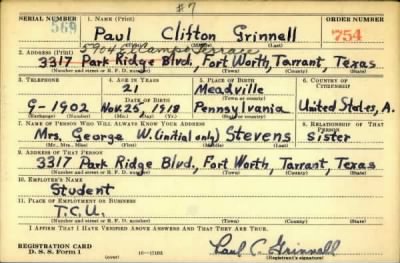 #7
SERIAL NUMBER 1. NAME (Print) ORDER NUMBER
569 Paul Clifton Grinnell 754
(First) (Middle) (Last)
5904 El Campo Terrace
2. ADDRESS (Print)
3317 Park Ridge Blvd., Fort Worth, Tarrant, Texas
(Number and street or R. F. D. number) (Town) (County) (State)
3. TELEPHONE 4. AGE IN YEARS 5. PLACE OF BIRTH 6. COUNTRY OF CITIZENSHIP
21 Meadville
DATE OF BIRTH (Town or county)
9-1902 Nov. 25, 1918 Pennsylvania United States, A.
(Exchange) (Number) (Mo.) (Day) (Yr.) (State or country)
7. NAME OF PERSON WHO WILL ALWAYS KNOW YOUR ADDRESS 8. RELATIONSHIP OF THAT PERSON
Mrs. George W. (initial only) Stevens Sister
(Mr., Mrs., Miss) (First) (Middle) (Last)
9. ADDRESS OF THAT PERSON
3317 Park Ridge Blvd., Fort Worth, Tarrant, Texas
(Number and street or R. F. D. number) (Town) (County) (State)
10. EMPLOYER'S NAME
Student
11. PLACE OF EMPLOYMENT OR BUSINESS
T.C.U.
(Number and street or R. F. D. number) (Town) (County) (State)
I AFFIRM THAT I HAVE VERIFIED ABOVE ANSWERS AND THAT THEY ARE TRUE.
REGISTRATION CARD
D. S. S. Form 1 (over) Paul C. Grinnell
(Registrant's signature)